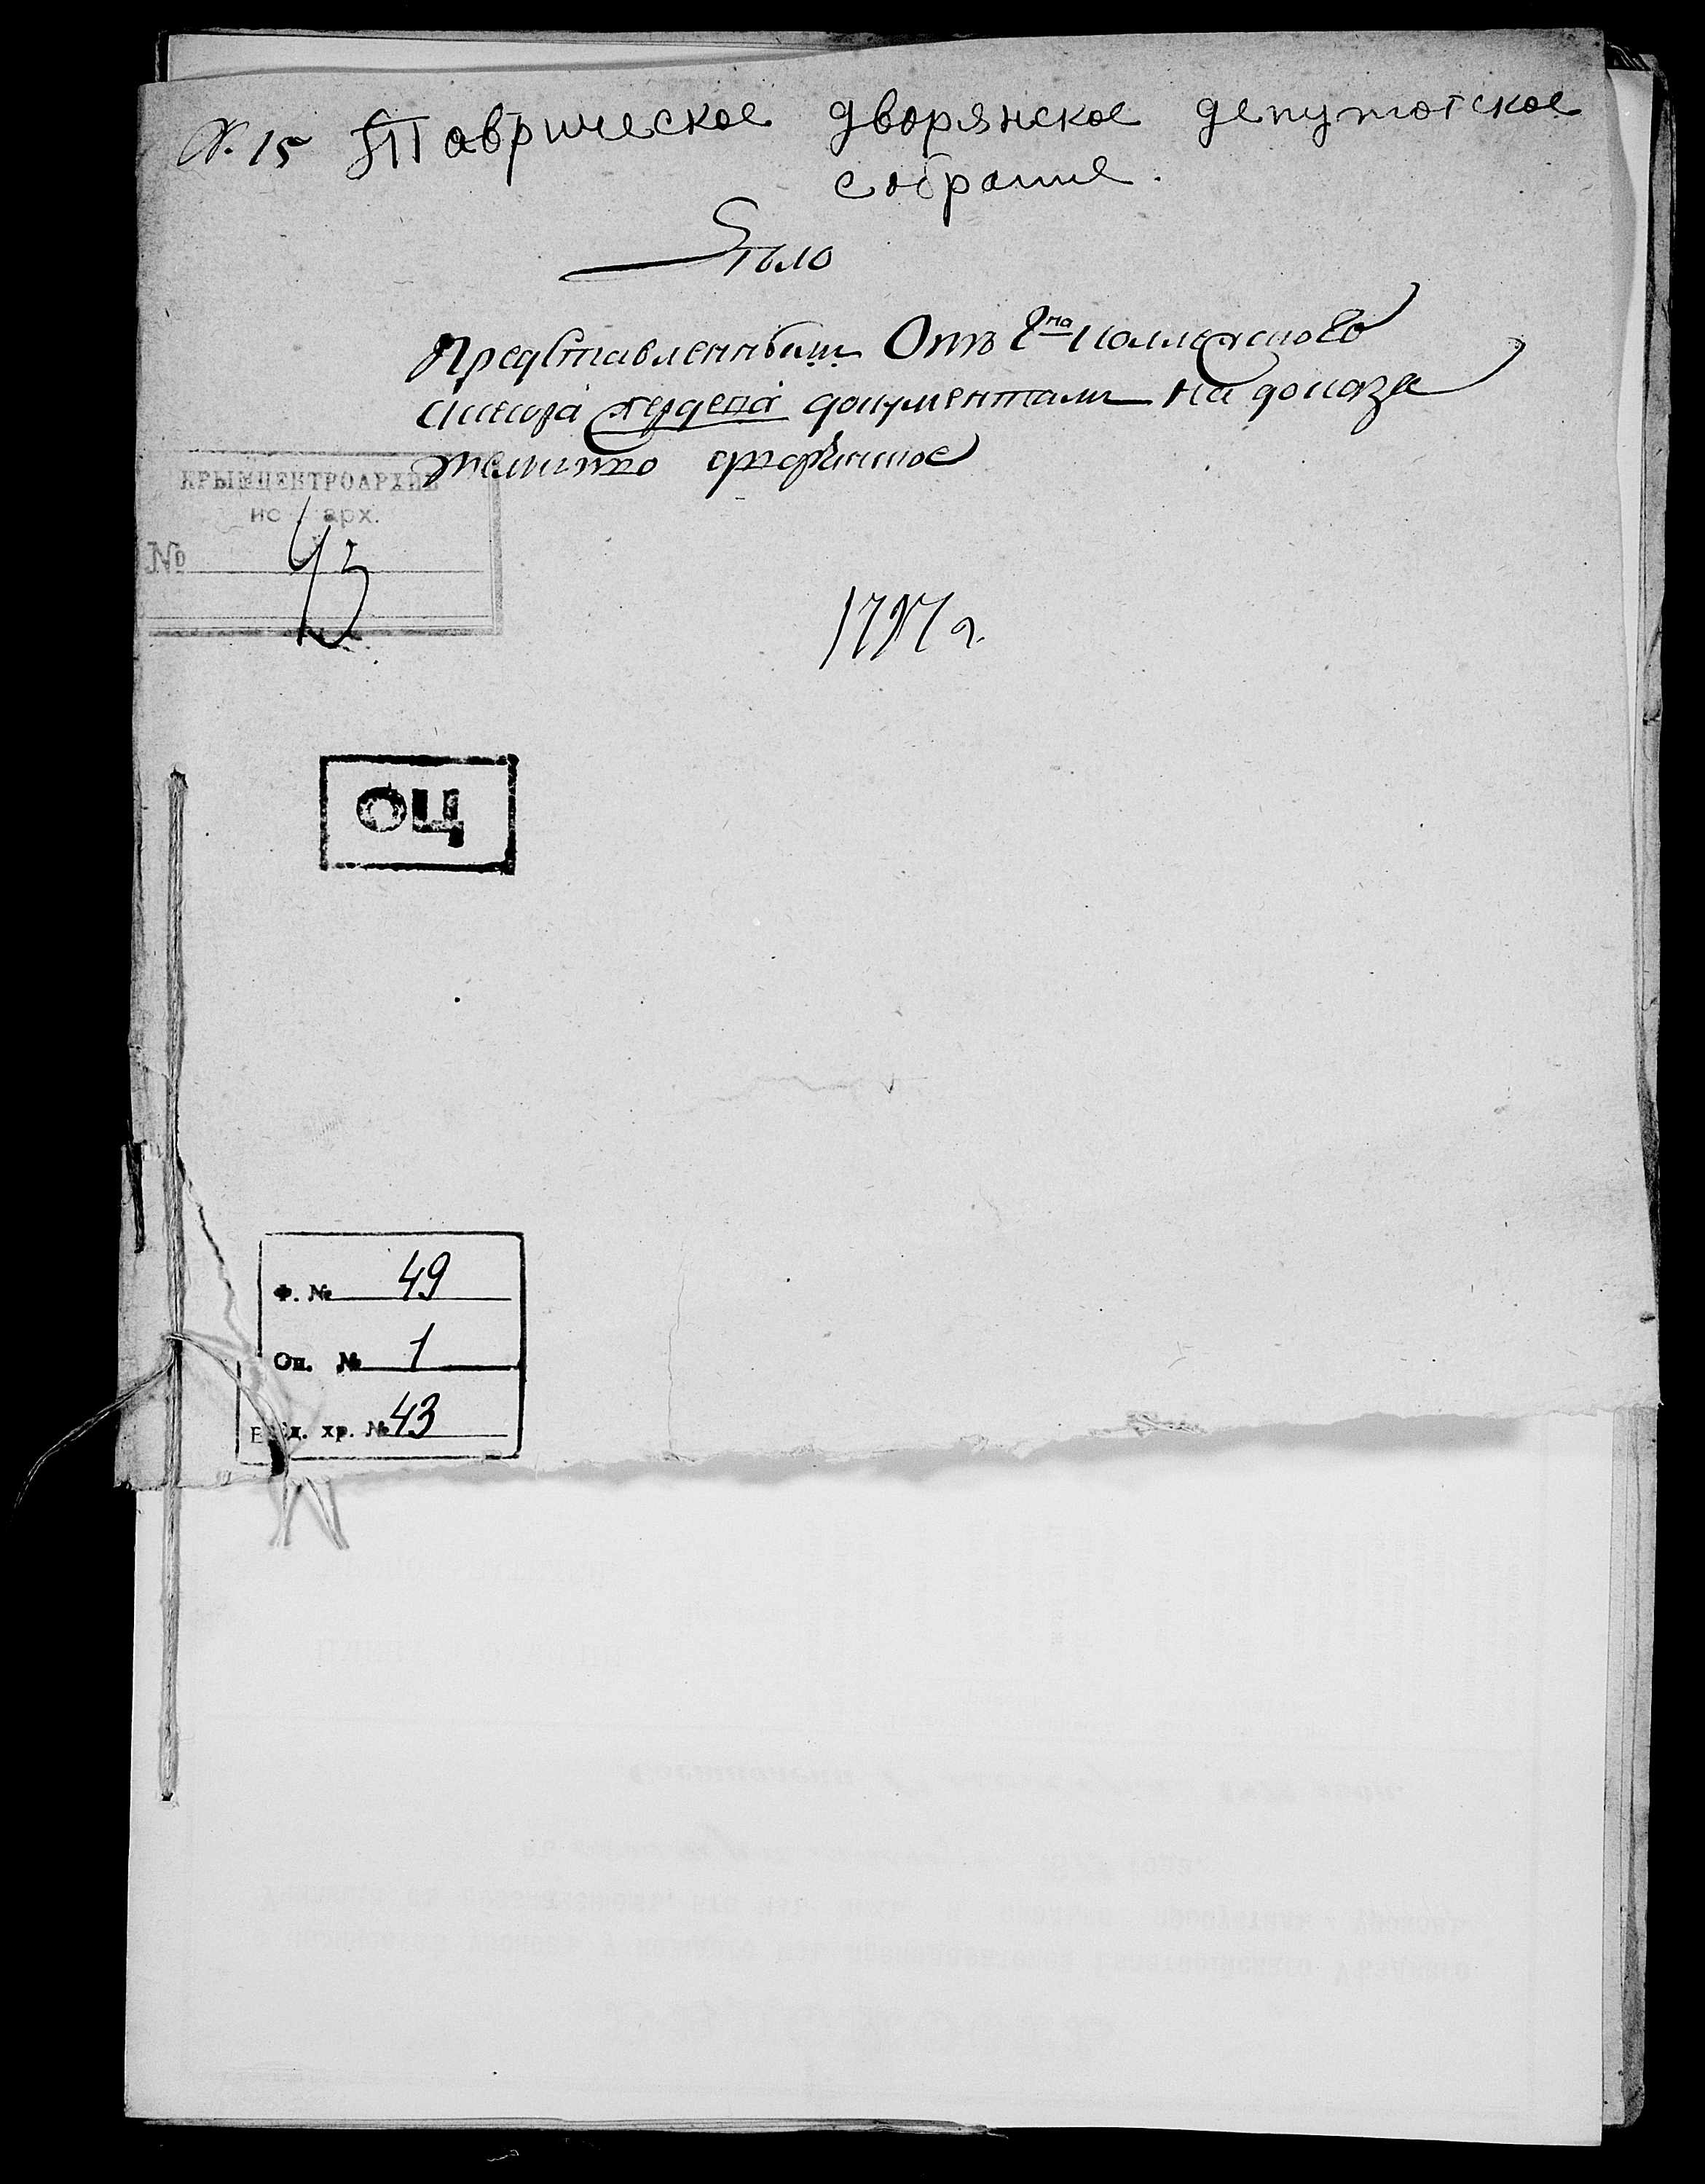 №. 15 Таврическое дворянское депутатское
собрание.
Дѣло
Представленнымъ Отъ Гна Коллежского
документамъ На доказа
тельство дворянское
КРЫМЦЕНТРОАРХИВ
арх.
№
1797 г.
ОЦ
Ф. № 49
Оп. № 1
Ед. хр. № 43